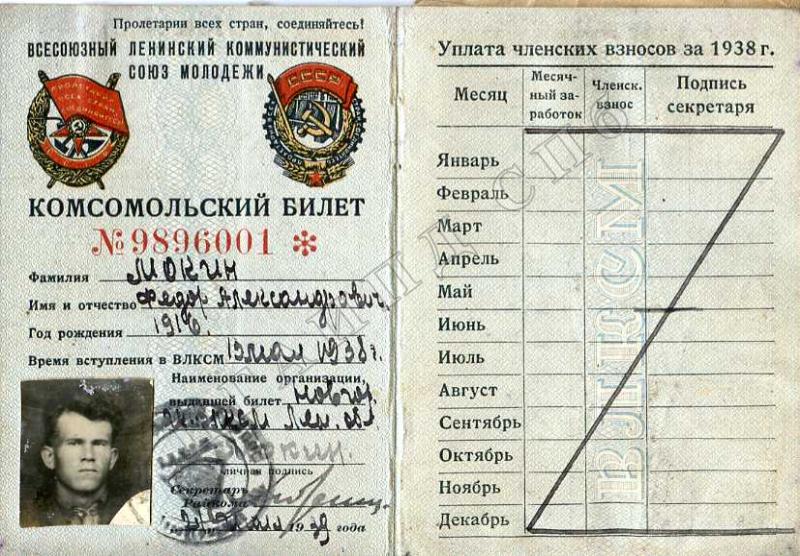 Пролетарии всех стран, соединяйтесь!
ВСЕСОЮЗНЫЙ ЛЕНИНСКИЙ КОММУНИСТИЧЕСКИЙ
СОЮЗ МОЛОДЕЖИ
СССР
КОМСОМОЛЬСКИЙ БИЛЕТ
№ 9896001 *
Фамилия Мокин
Имя и отчество Федор Александрович
Год рождения 1916
Время вступления в ВЛКСМ 1938 г.
Наименование организации,
выдавшей билет Новгор.
Лен. обл
Мокин
личная подпись
Секретарь
Райкома
1939 года
Уплата членских взносов за 1938 г.
Месяц
Месяч-
ный за-
работок
Членск.
взнос
Подпись
секретаря
Январь
Февраль
Март
Апрель
Май
Июнь
Июль
Август
Сентябрь
Октябрь
Ноябрь
Декабрь
ВЛКСМ